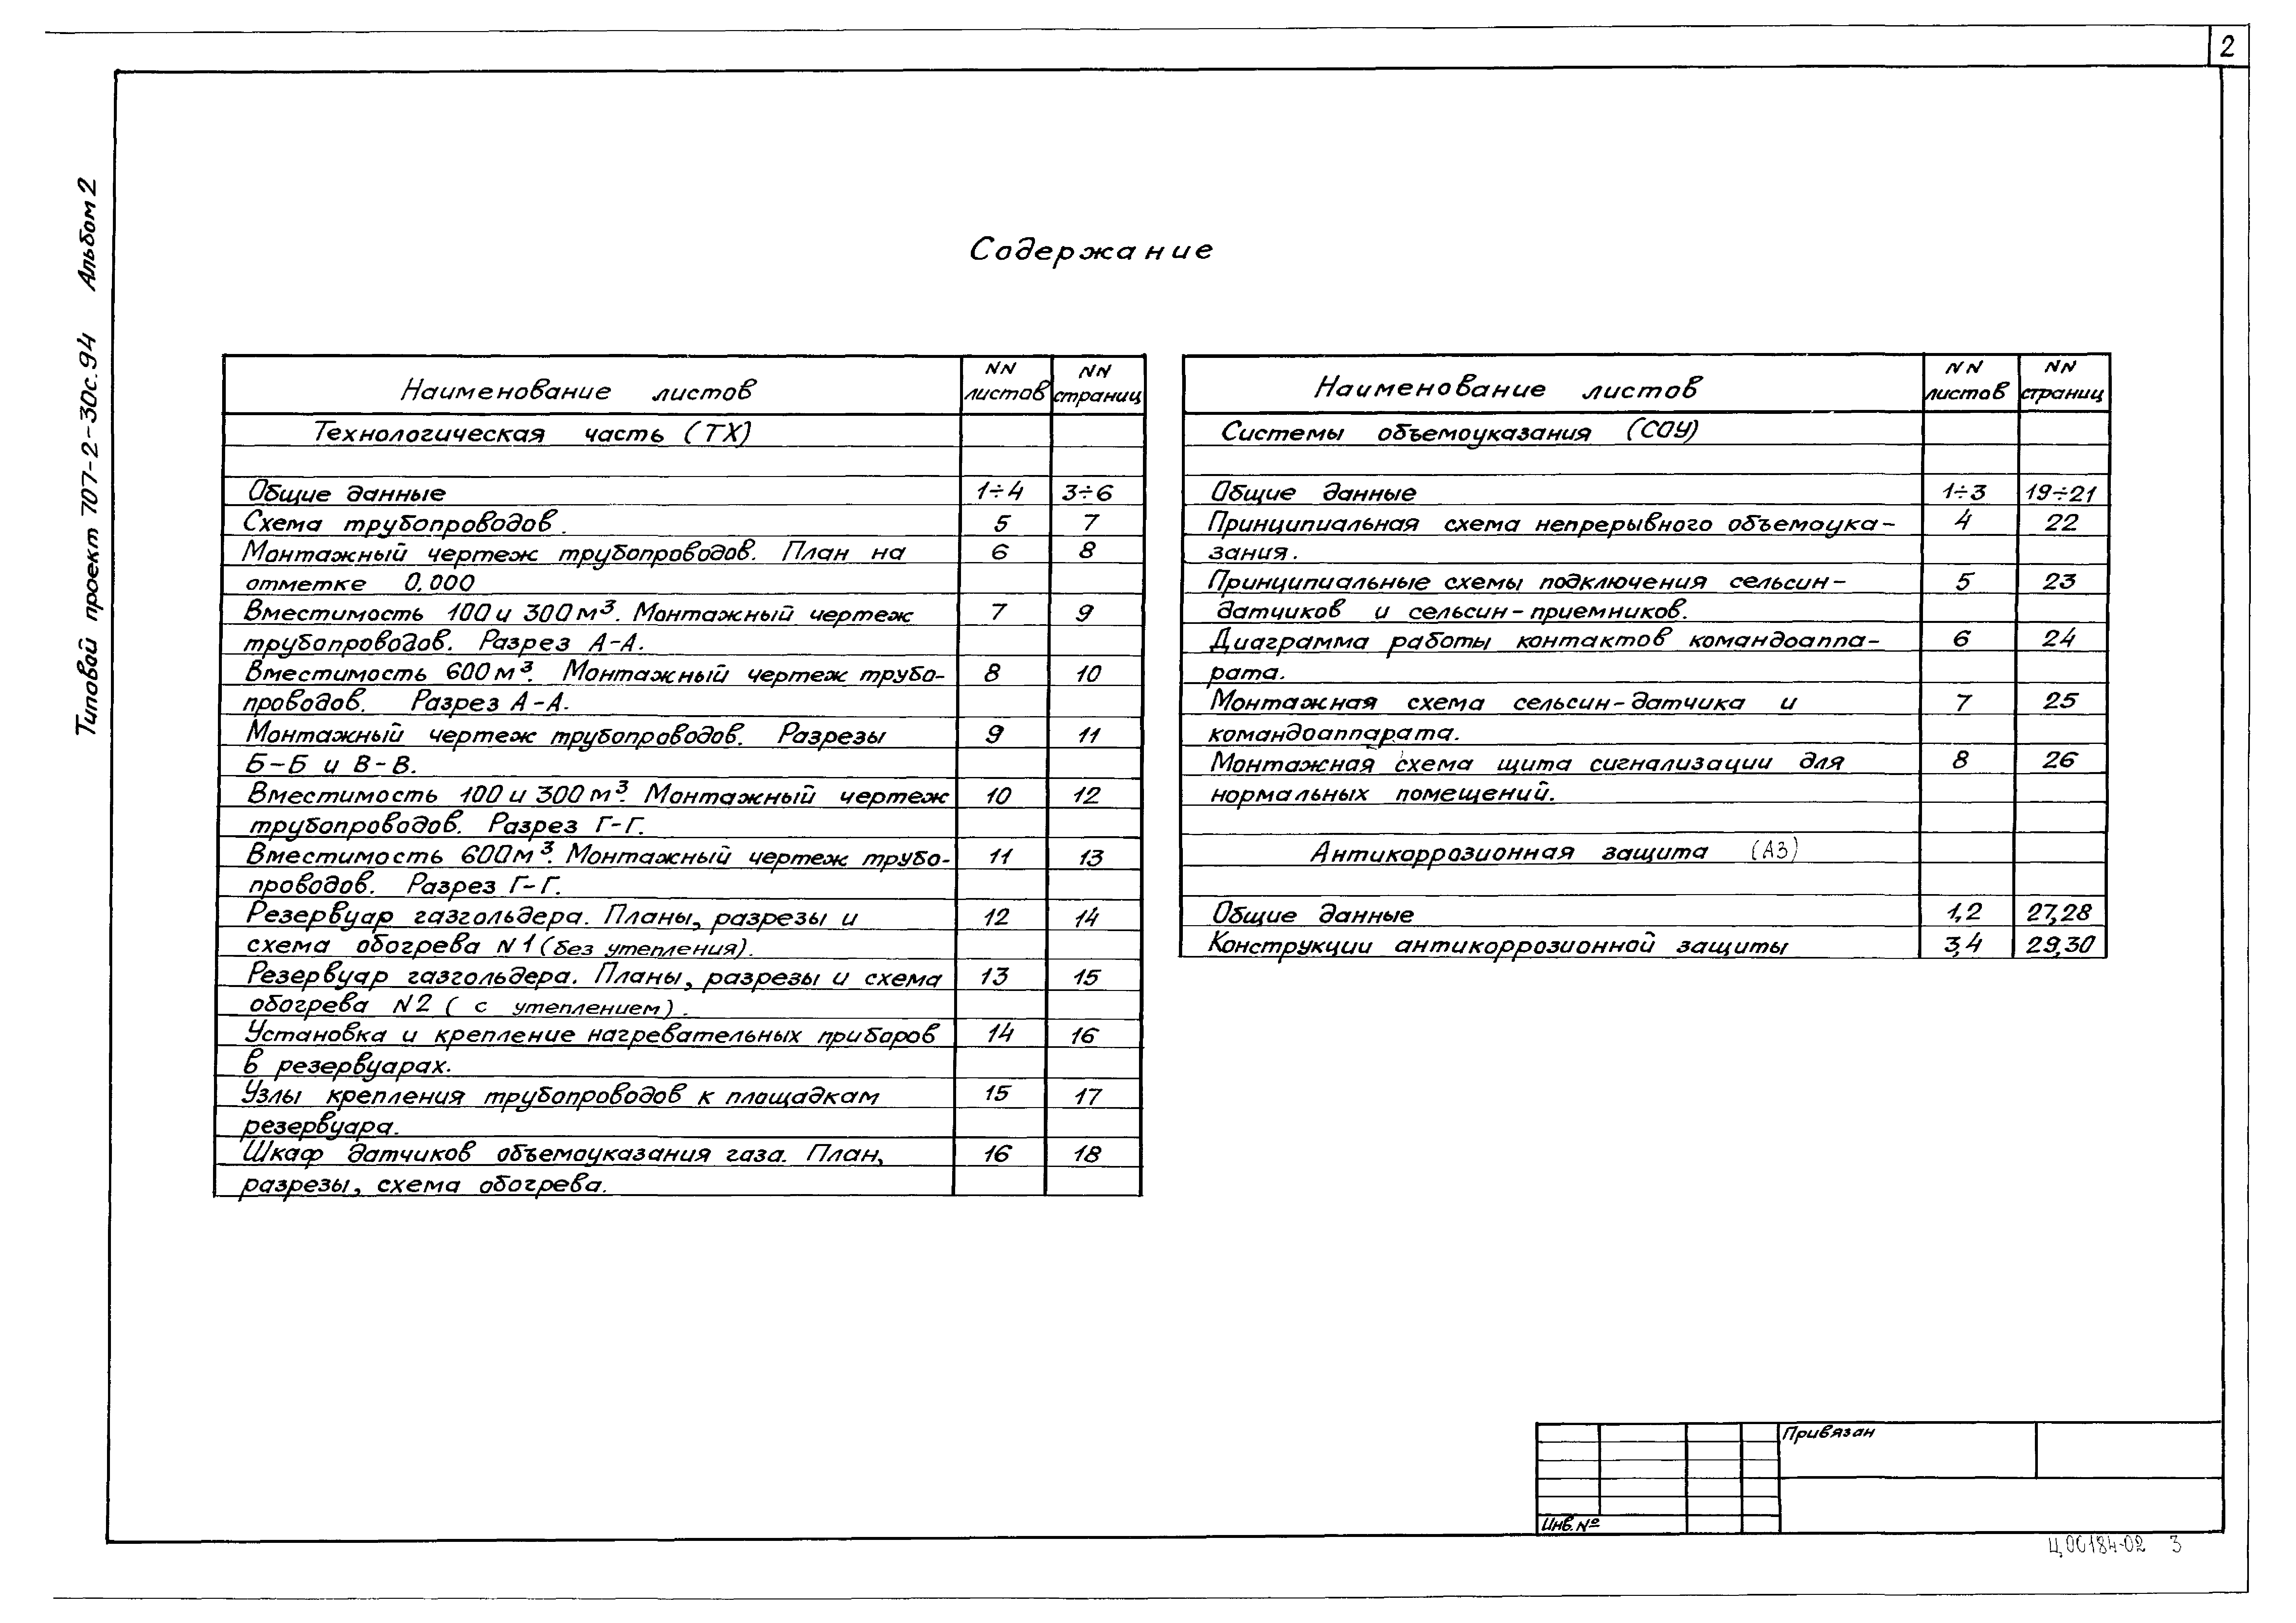 2
Типовой проект 707-2-30с.94 Альбом 2
Содержание
Наименование листов NN листов NN страниц
Технологическая часть (ТХ)
Общие данные 1÷4 3÷6
Схема трубопроводов. 5 7
Монтажный чертеж трубопроводов. План на 6 8
отметке 0.000
Вместимость 100 и 300 м³. Монтажный чертеж 7 9
трубопроводов. Разрез А-А.
Вместимость 600 м³. Монтажный чертеж трубо- 8 10
проводов. Разрез А-А.
Монтажный чертеж трубопроводов. Разрезы 9 11
Б-Б и В-В.
Вместимость 100 и 300 м³. Монтажный чертеж 10 12
трубопроводов. Разрез Г-Г.
Вместимость 600 м³. Монтажный чертеж трубо- 11 13
проводов. Разрез Г-Г.
Резервуар газгольдера. Планы, разрезы и 12 14
схема обогрева N1 (без утепления).
Резервуар газгольдера. Планы, разрезы и схема 13 15
обогрева N2 ( с утеплением).
Установка и крепление нагревательных приборов 14 16
в резервуарах.
Узлы крепления трубопроводов к площадкам 15 17
резервуара.
Шкаф датчиков объемоуказания газа. План, 16 18
разрезы, схема обогрева.
Наименование листов NN листов NN страниц
Системы объемоуказания (СОУ)
Общие данные 1÷3 19÷21
Принципиальная схема непрерывного объемоука- 4 22
зания.
Принципиальные схемы подключения сельсин- 5 23
датчиков и сельсин-приемников.
Диаграмма работы контактов командоаппа- 6 24
рата.
Монтажная схема сельсин-датчика и 7 25
командоаппарата.
Монтажная схема щита сигнализации для 8 26
нормальных помещений.
Антикоррозионная защита (АЗ)
Общие данные 1,2 27,28
Конструкции антикоррозионной защиты 3,4 29,30
Привязан
Инв. №
Ц00184-02 3